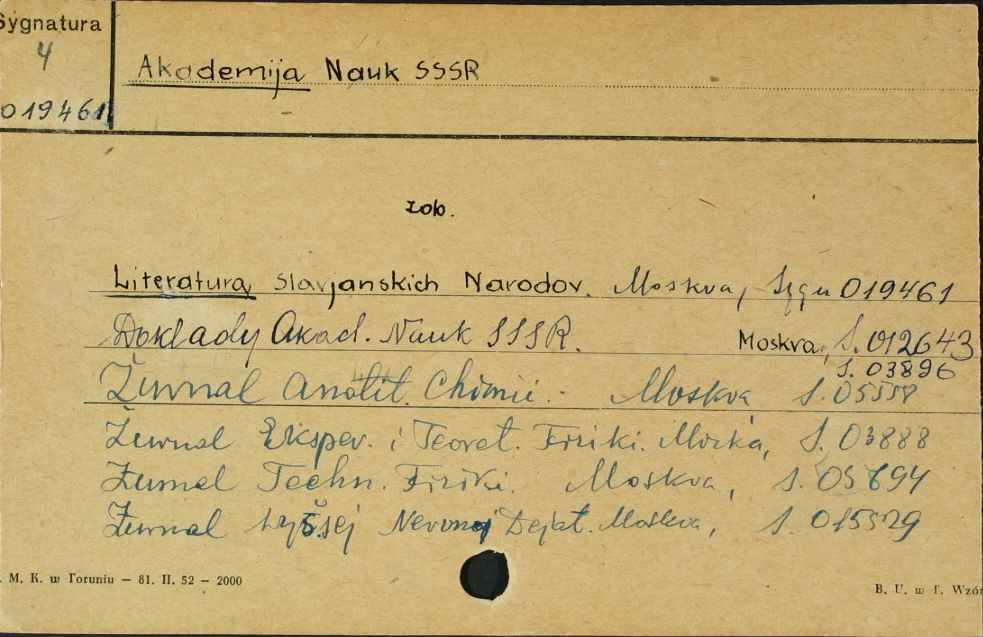 Sygnatura
4
019461
Akademija Nauk SSSR
zob.
Literatura Slavjanskich Narodov. Moskva, Sygn 019461
Doklady Akad. Nauk SSSR. Moskva, S. 012643
S. 03896
Žurnal Analit. Chimii. - Moskva S. 05558
Žurnal Eksper. i Teoret. Fiziki. Moskva, S. 03888
Žurnal Techn. Fiziki. Moskva, S. 05694
Žurnal Vyšsej Nervnoj Dejat. Moskva, S. 015529
. M. K. w Toruniu — 81. II. 52 — 2000
B. U. w T. Wzór